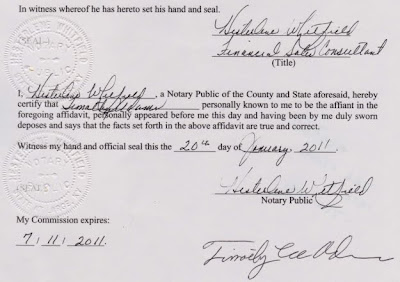 In witness whereof he has hereto set his hand and seal.
HesterLane Whitfield
Financial Sales Consultant
(Title)
I, HesterLane Whitfield, a Notary Public of the County and State aforesaid, hereby
certify that Timothy Adams personally known to me to be the affiant in the
foregoing affidavit, personally appeared before me this day and having been by me duly sworn
deposes and says that the facts set forth in the above affidavit are true and correct.
Witness my hand and official seal this the 20th day of January 2011.
HesterLane Whitfield
Notary Public
My Commission expires:
7/11/2011.
Timothy Lee